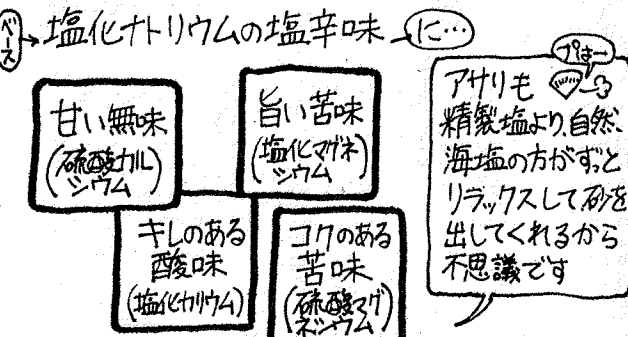 ベース
塩化ナトリウムの塩辛味 に…
甘い無味
(硫酸カル
シウム)
旨い苦味
(塩化マグネ
シウム)
キレのある
酸味
(塩化カリウム)
コクのある
苦味
(硫酸マグ
ネシウム)
プはー
アサリも
精製塩より、自然
海塩の方がずっと
リラックスして砂を
出してくれるから
不思議です